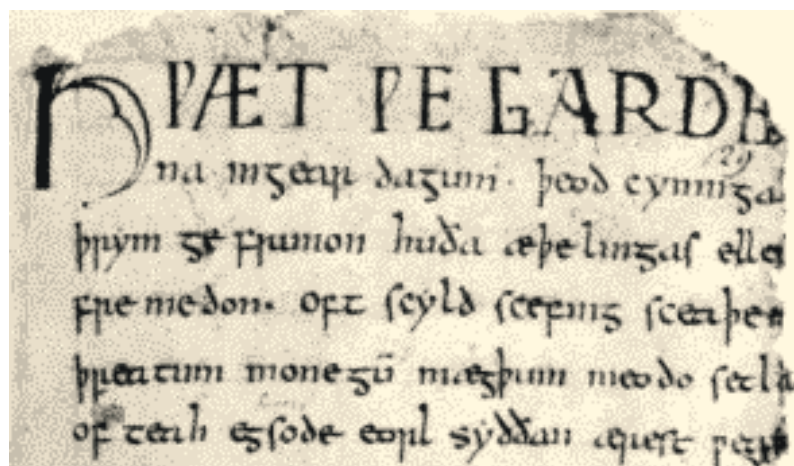 HǷÆT ǷE GARDE
na ingear dagum. þeod cyninga
þrym ge frunon huða æþelingas ellen
fremedon. oft scyld scefing sceaþen
þreatum monegū mægþum meodo setla
of teah egsode eorl syððan ærest